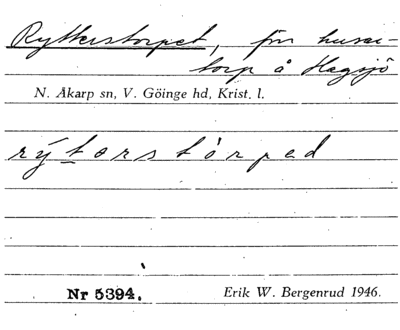 Rytterstorpet, förr husar-
torp å Hagsjö
N. Åkarp sn, V. Göinge hd, Krist. l.
rýtərstòrpəd
Nr 5394.
Erik W. Bergenrud 1946.